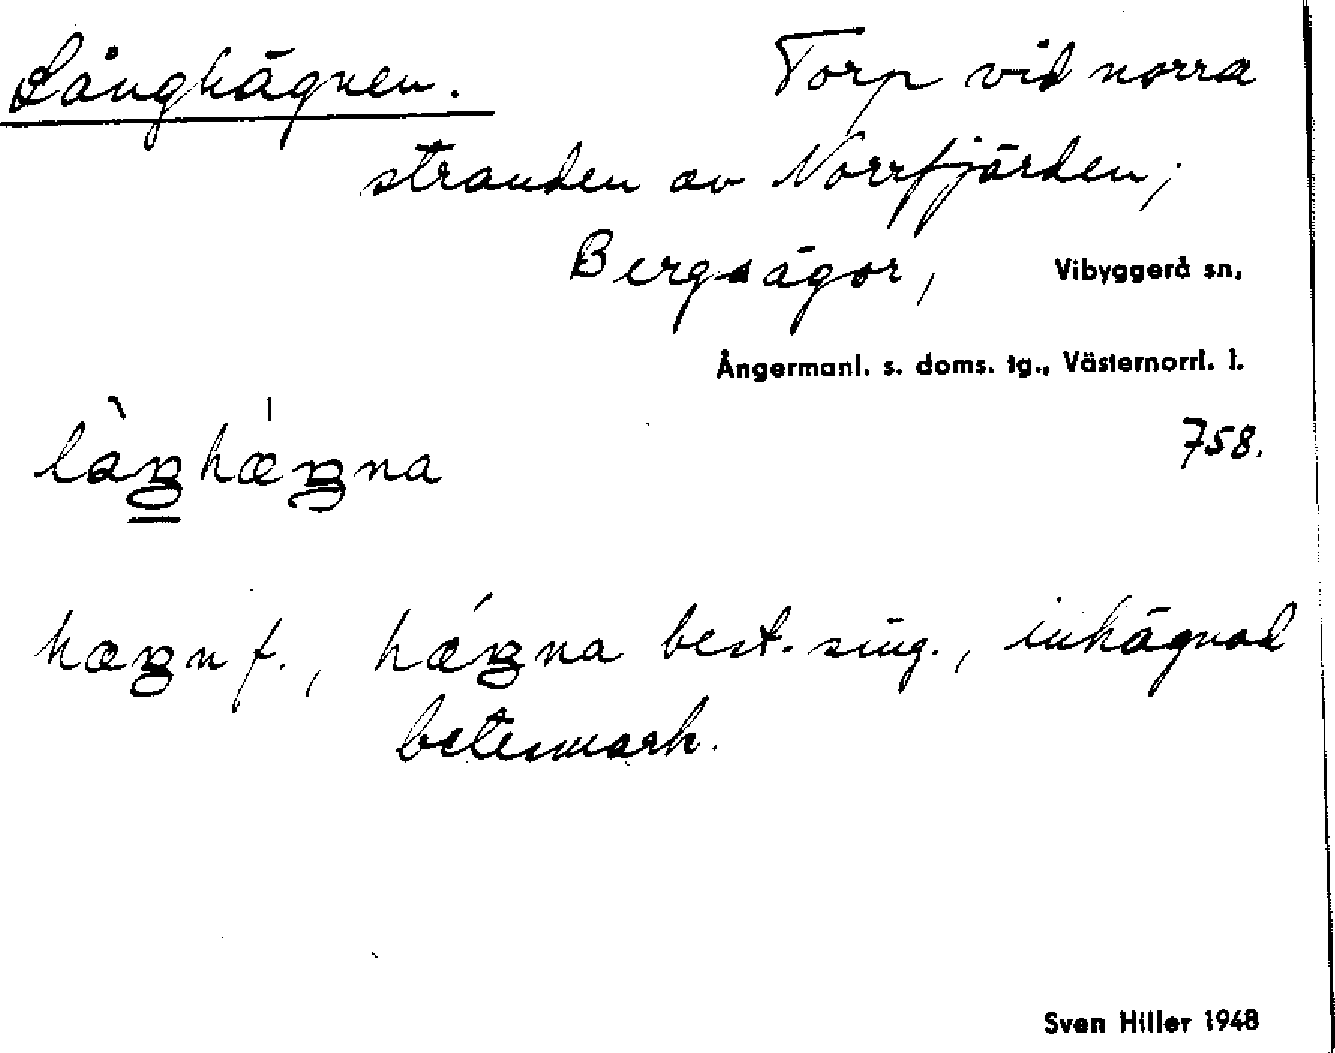 Långhägnen.
Torp vid norra
stranden av Norrfjärden,
Bergsägor,
Vibyggerå sn,
Ångermanl. s. doms. tg., Västernorrl. l.
758.
làŋhǽŋna
hæŋn f., hǽŋna best. sing., inhägnad
betesmark.
Sven Hiller 1948